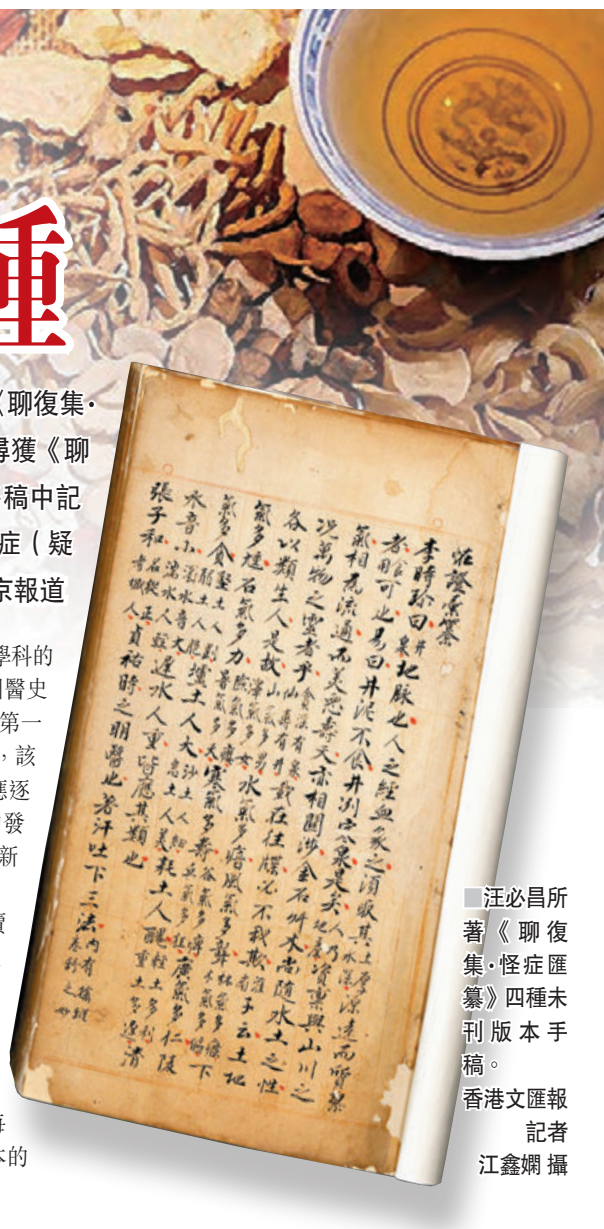 種
《聊復集·
尋獲《聊
稿中記
症（疑
京報道
學科的
醫史
第一
，該
應逐
發
新
本的
怪證彙纂
李時珍曰井泉地脉也人之經血象之須取其土厚水深源遠而質潔
者食用可也易曰井泥不食井冽寒泉是矣人乃地產資禀與山川之
氣相為流通而美惡壽夭亦相關涉金石草木尚隨水土之性
况萬物之靈者乎貪淫有泉仙壽有井載在往牒必不我欺淮南子云土地
各以類生人是故山氣多男澤氣多女水氣多瘖風氣多聾林氣多癃木氣多傴下
氣多尰石氣多力險氣多癭暑氣多夭寒氣多壽谷氣多痺丘氣多狂廣氣多仁陵
氣多貪堅土人剛弱土人脆壚土人大沙土人細息土人美耗土人醜輕土多利重土多遲清
水音小濁水音大湍水人輕遲水人重皆應其類也
張子和名從正考城人貞祐時之明醫也著汗吐下三法內有
■汪必昌所
著《聊復
集·怪症匯
纂》四種未
刊版本手
稿。
香港文匯報
記者
江鑫嫻 攝